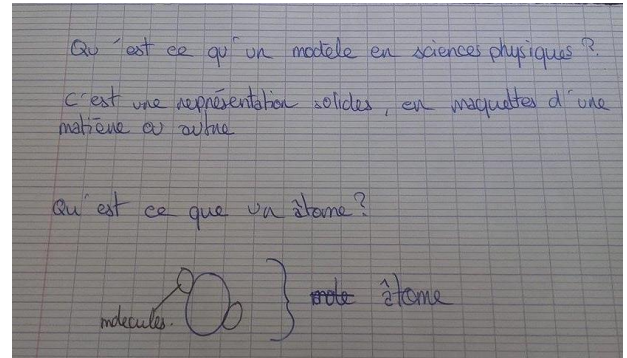 Qu'est ce qu'un modele en sciences physiques ?
C'est une représentation solides, en maquettes d'une
matière ou autre
Qu'est ce que un âtome ?
molecules.
âtome